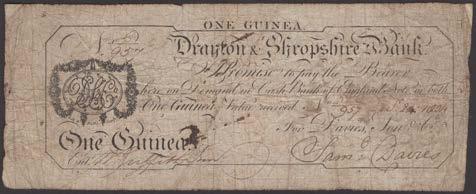 ONE GUINEA.
957
Drayton & Shropshire Bank
I Promise to pay the Bearer
here on Demand in Cash Bank of England Notes or both
One Guinea Value received
957
For Davies, Son & Co
One Guinea
Ent.
Sam. Davies